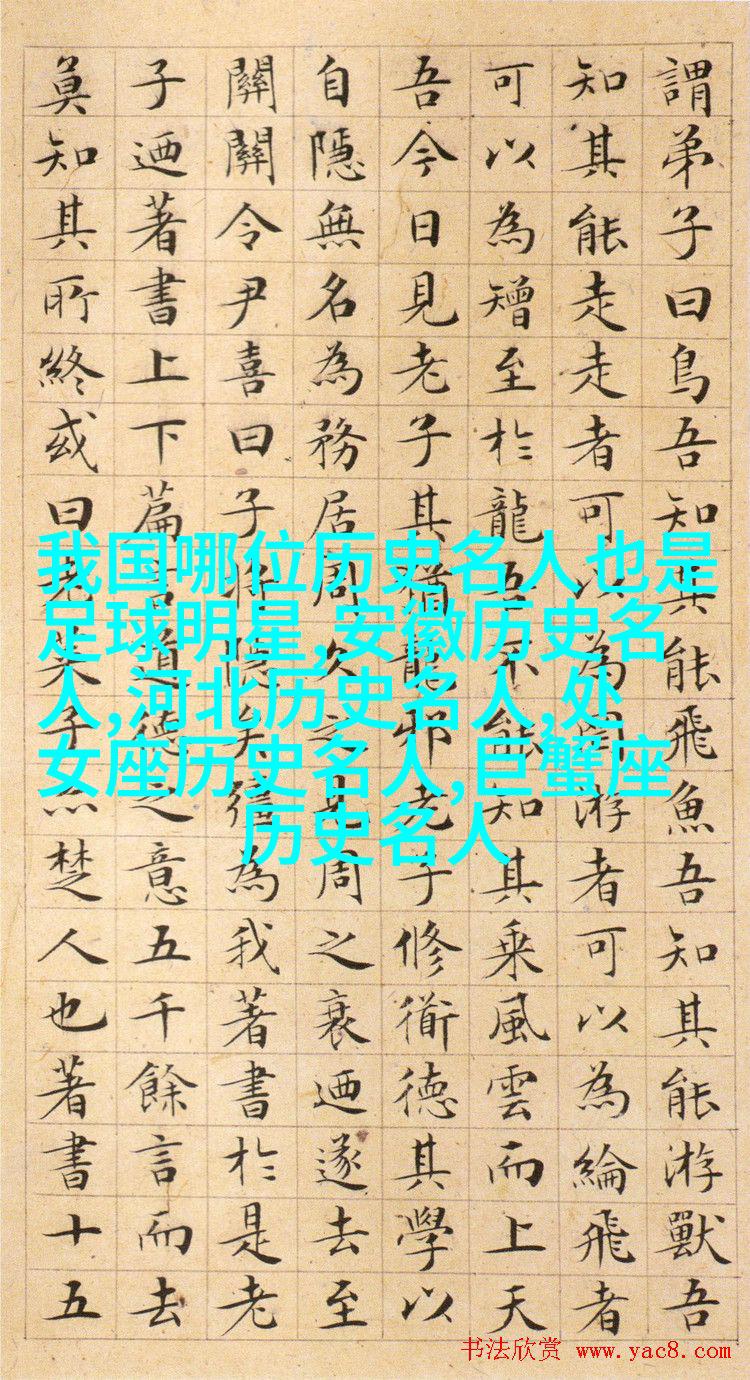 謂弟子曰鳥吾知其能飛魚吾知其能游獸吾
知其能走走者可以為罔游者可以為綸飛者
可以為矰至於龍吾不能知其乘風雲而上天
吾今日見老子其猶龍邪老子修衟德其學以
自隱無名為務居周久之見周之衰迺遂去至
關關令尹喜曰子將隱矣彊為我著書於是老
子迺著書上下篇言道德之意五千餘言而去
莫知其所終或曰老萊子亦楚人也著書十五
我国哪位历史名人也是
足球明星,安徽历史名
人,河北历史名人,处
女座历史名人,巨蟹座
历史名人
书法欣赏 www.yac8.com